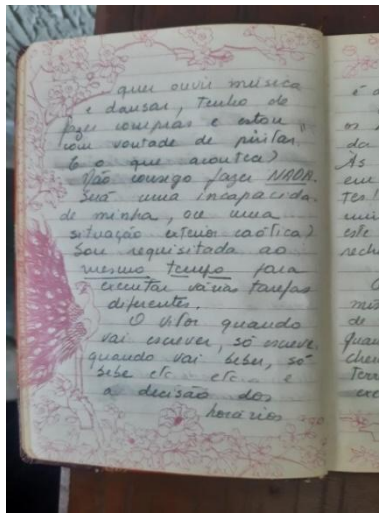 quer ouvir música
e dansar, tenho de
fazer compras e estou
com vontade de pintar.
E o que acontece?
Não consigo fazer NADA.
Será uma incapacida-
de minha, ou uma
situação exterior caótica?
Sou requisitada ao
mesmo tempo para
executar várias tarefas
diferentes.
O Vitor quando
vai escrever, só escreve,
quando vai beber, só
bebe etc etc e
a decisão dos
horários